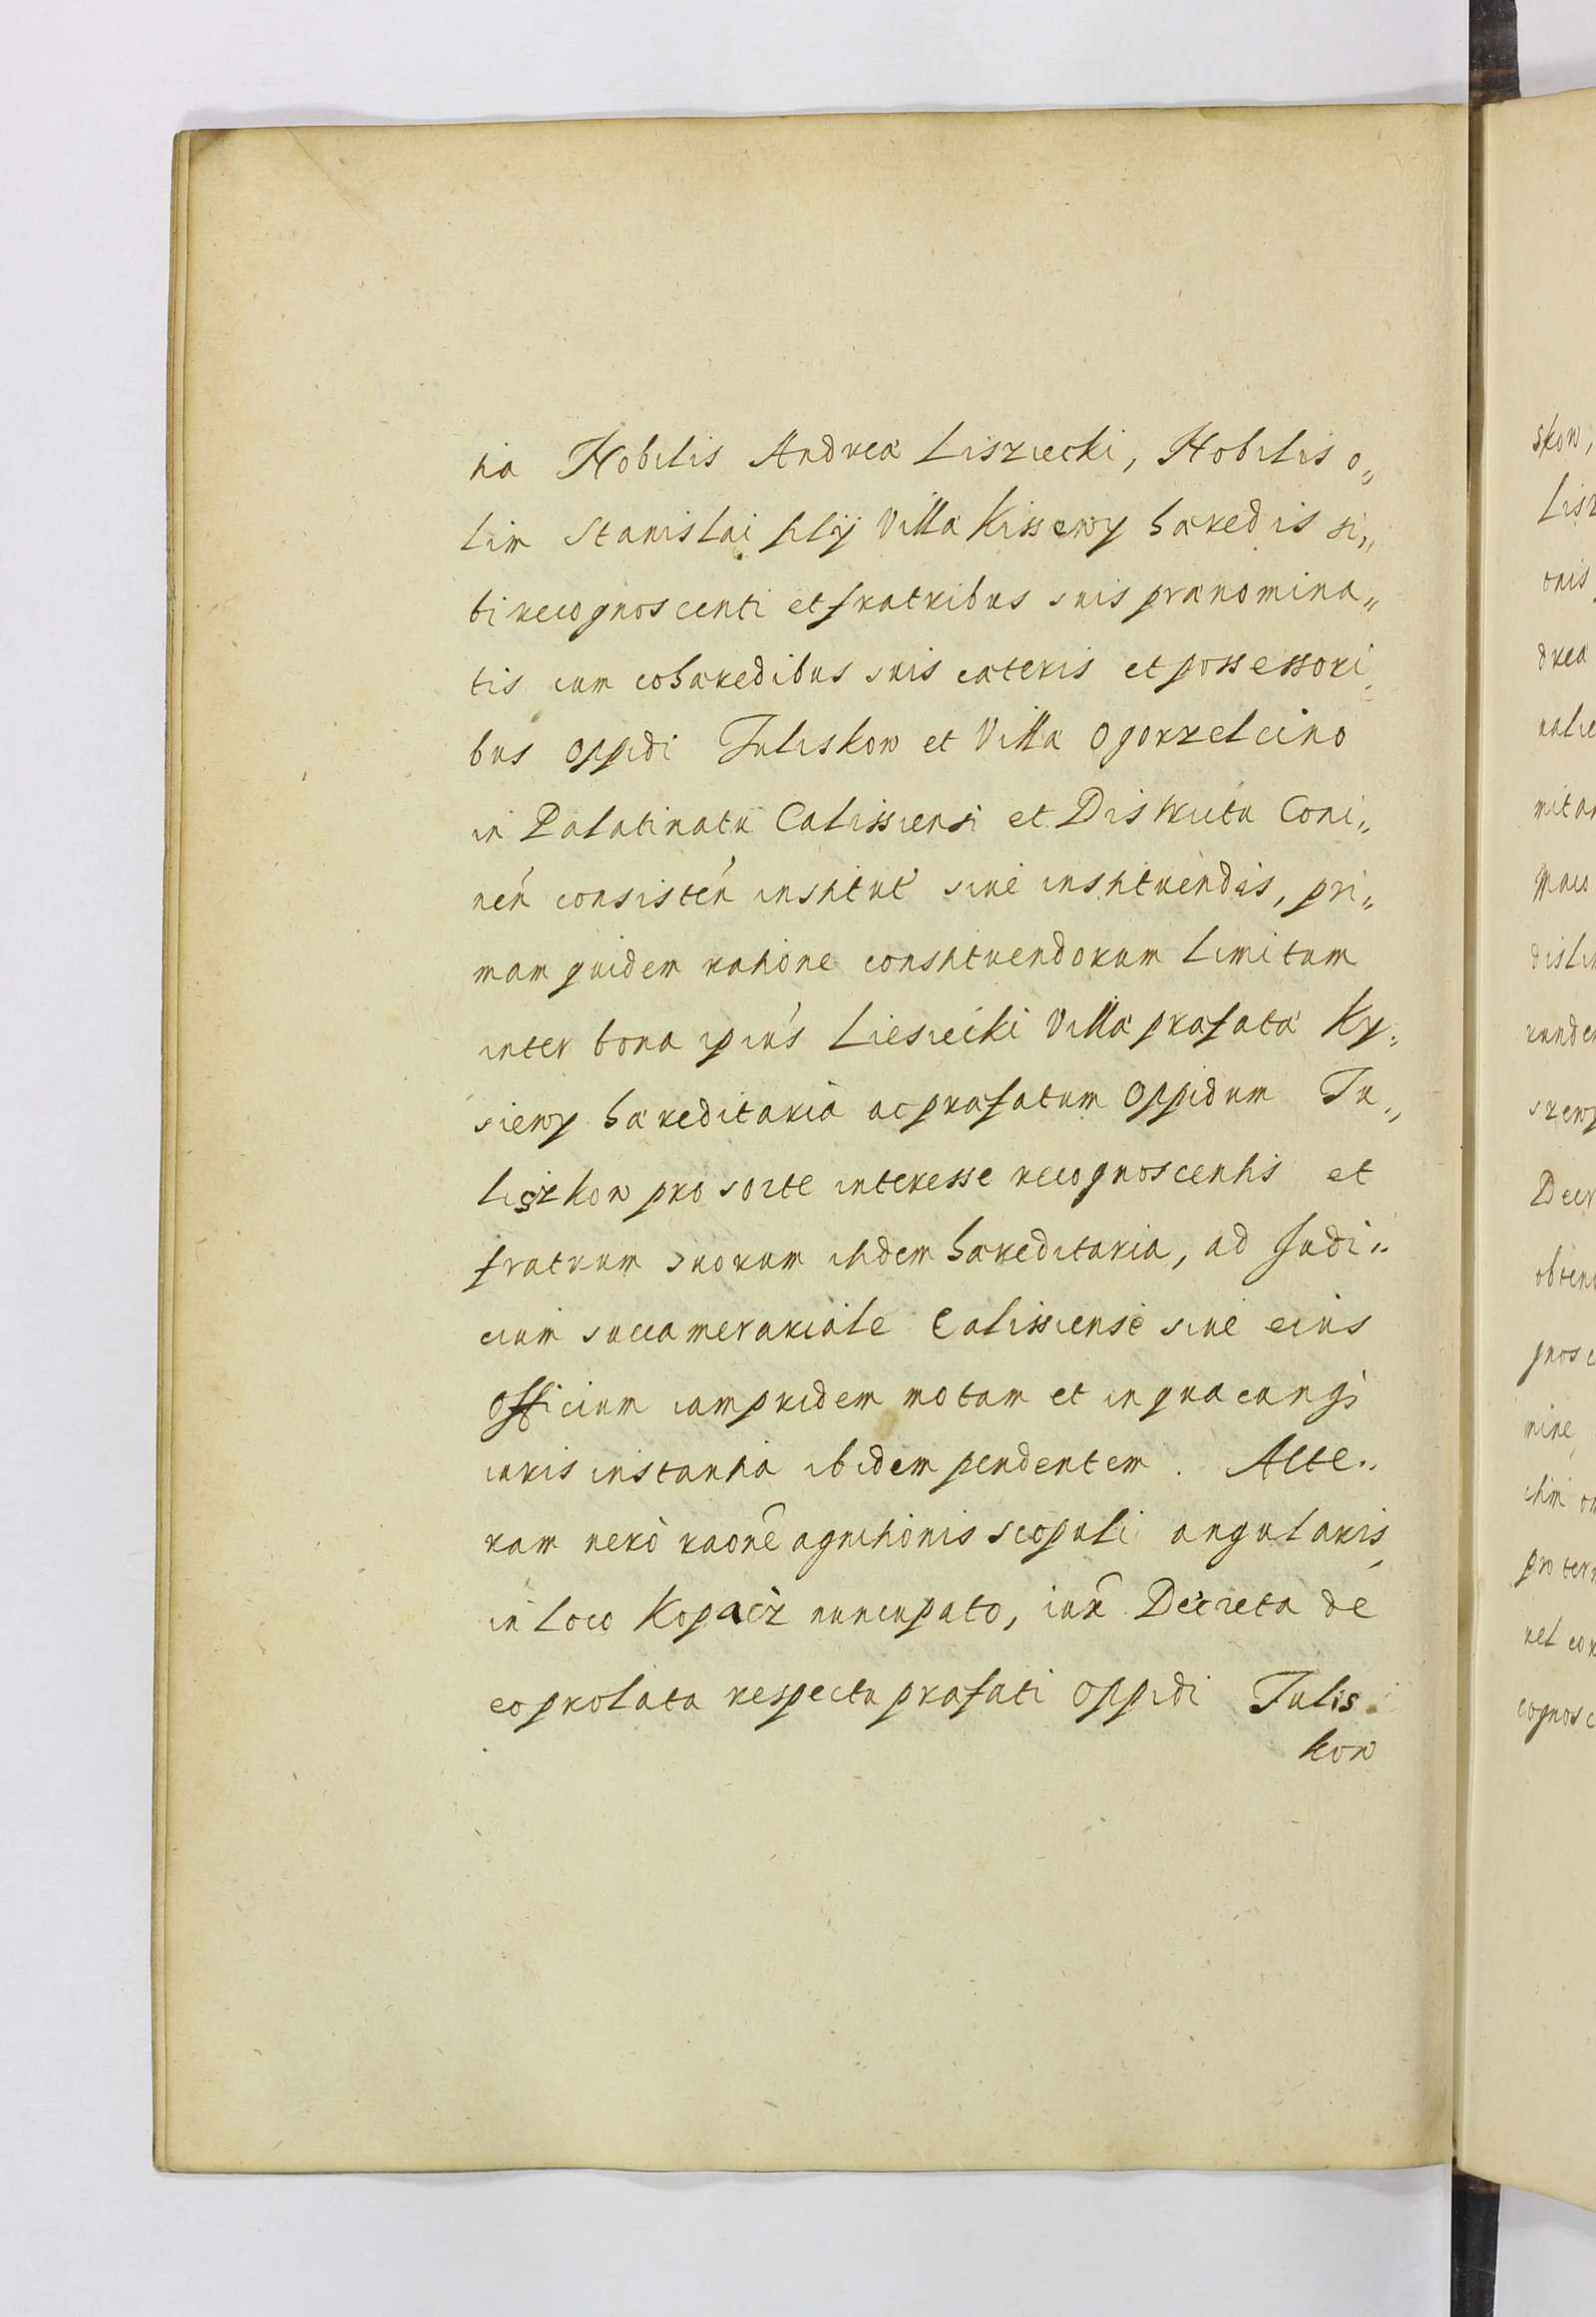 tia Nobilis Andreæ Lisziecki, Nobilis o„
lim Stanislai filij Villæ Kissewy hæredis si„
bi recognoscenti et fratribus suis prænomina„
tis cum cohæredibus suis cæteris et possessori„
bus oppidi Tuliskow et Villæ Ogorzelcino
in Palatinatu Calissiensi et Districtu Coni„
nen consisten institut siue instituendis, pri„
mam quidem ratione constituendorum limitum
inter bona ipius Liesiecki Villæ præfatæ Ky„
siewy hæreditaria ac præfatum oppidum Tu„
liszkow pro sorte interesse recognoscentis et
fratrum suorum itidem hæreditaria, ad Judi„
cium succamerariale Calissiense siue eius
officium iampridem motam et in quacunqȝ
iuris instantia ibidem pendentem. Alte„
ram uerò raone agnitionis scopuli angularis
in loco Kopacz nuncupato, iux Decreta de
eo prolata respectu præfati oppidi Tulis
kow
skow,
Lisz
onis
dreæ
nitan
Decr
obten
gnosc
mine
pro term
uel con
cognosc